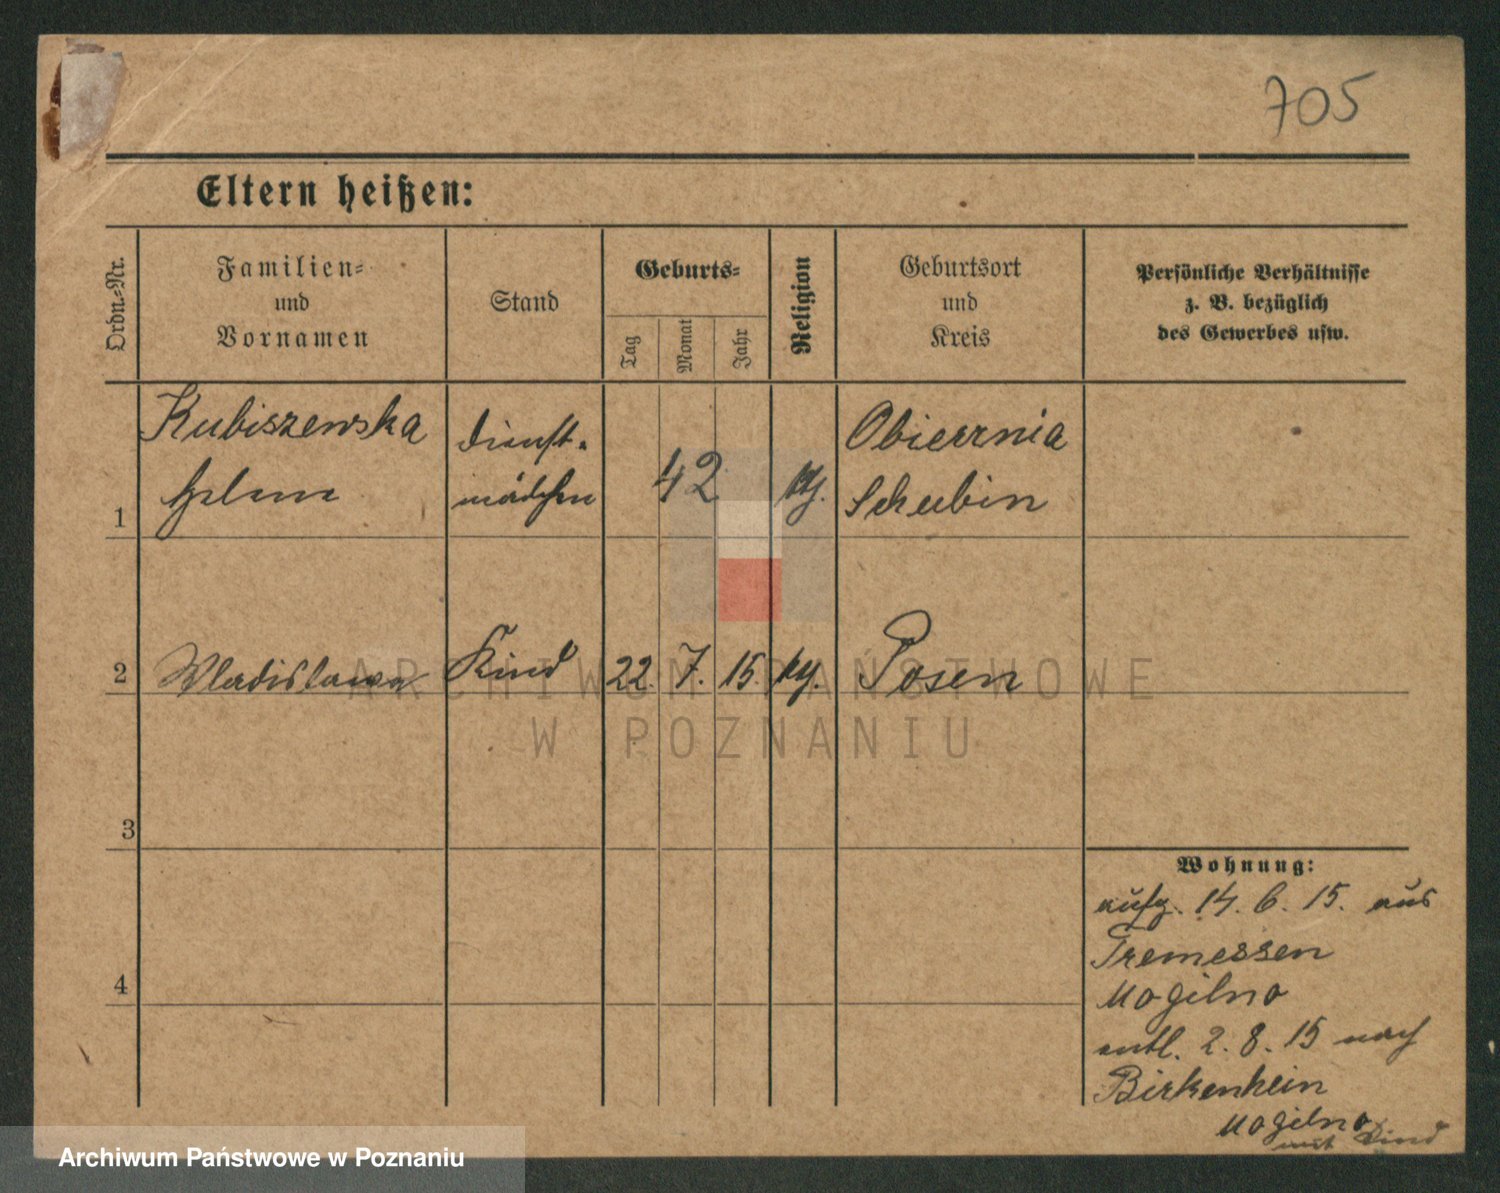 705
Eltern heißen:
Ordn.-Nr.
Familien-
und
Vornamen
Stand
Geburts-
Tag
Monat
Jahr
Religion
Geburtsort
und
Kreis
Persönliche Verhältnisse
z. B. bezüglich
des Gewerbes usw.
1
Kubiszewska
Helene
Dienst-
mädchen
42
kth.
Schubin
2
Wladislawa
Kind
22. 7. 15.
Posen
3
4
Wohnung:
aufg. 14. 6. 15. aus
Tremessen
Mogilno
entl. 2. 8. 15 nach
Birkenhein
Mogilno
mit Kind
ARCHIWUM PAŃSTWOWE
W POZNANIU
Archiwum Państwowe w Poznaniu